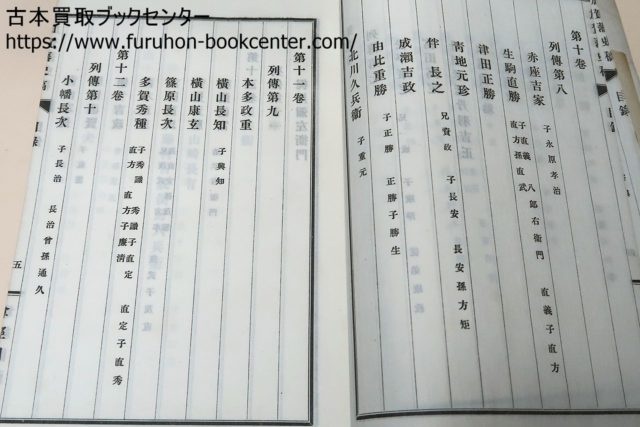 古本買取ブックセンター
https://www.furuhon-bookcenter.com/
第十卷
列傳第八
赤座吉家 子永原孝治
生駒直勝 子直義 八郎右衞門 直義子直方 直方孫直武
津田正勝
青地元珍 兄資政 子長安 長安孫方矩
伴長之
成瀨吉政
由比重勝 子正勝 正勝子勝生
北川久兵衞 子重元
第十一卷
列傳第九
本多政重
橫山長知 子興知
橫山康玄
篠原長次
多賀秀種 子秀識 秀識子直定 直定子直秀 直方 直方子廉淸
第十二卷
列傳第十
小幡長次 子長治 長治曾孫通久
目錄
五